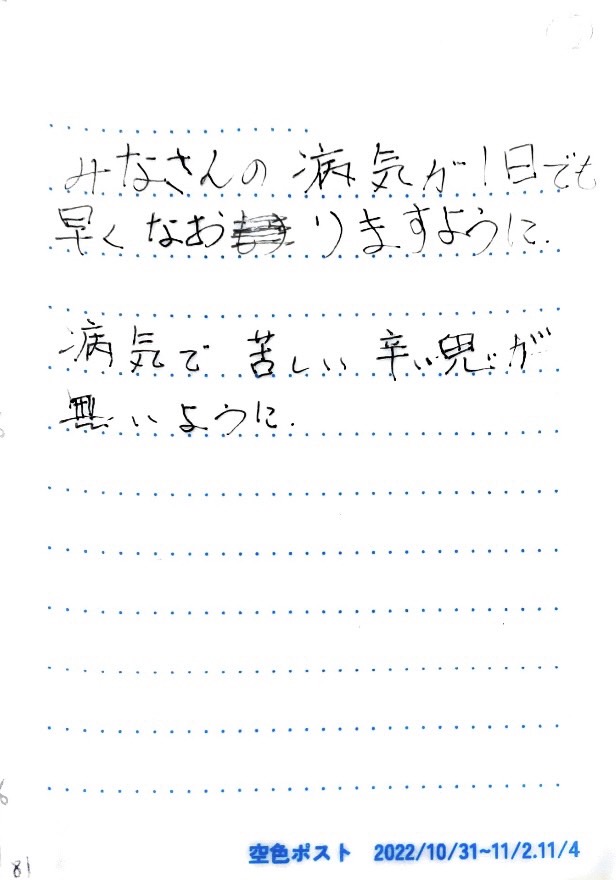 みなさんの病気が1日でも
早くなおりますように.
病気で苦しい辛い思いが
無いように.
空色ポスト 2022/10/31~11/2.11/4
81